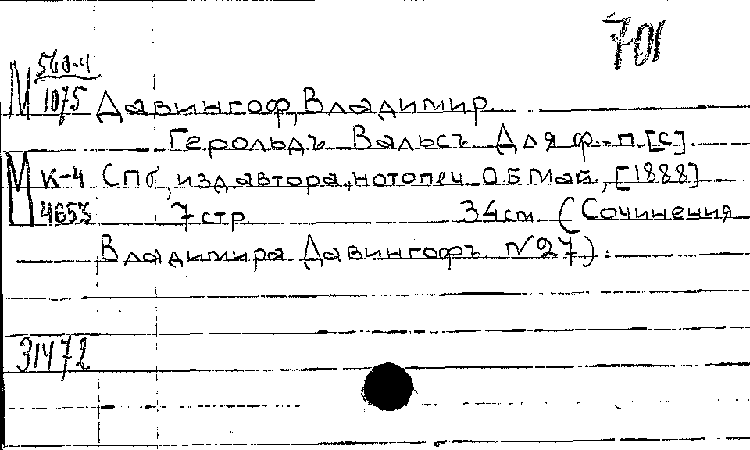 701
М 560-4
1075 Давингоф, Владимир
Герольдъ Вальсъ Для ф.-п. [С]
М К-4 СПб, изд автора, нотопеч. О.Б Май, [1888]
4653 7 стр 34см (Сочинения
Владимира Давингофъ №27).
31472